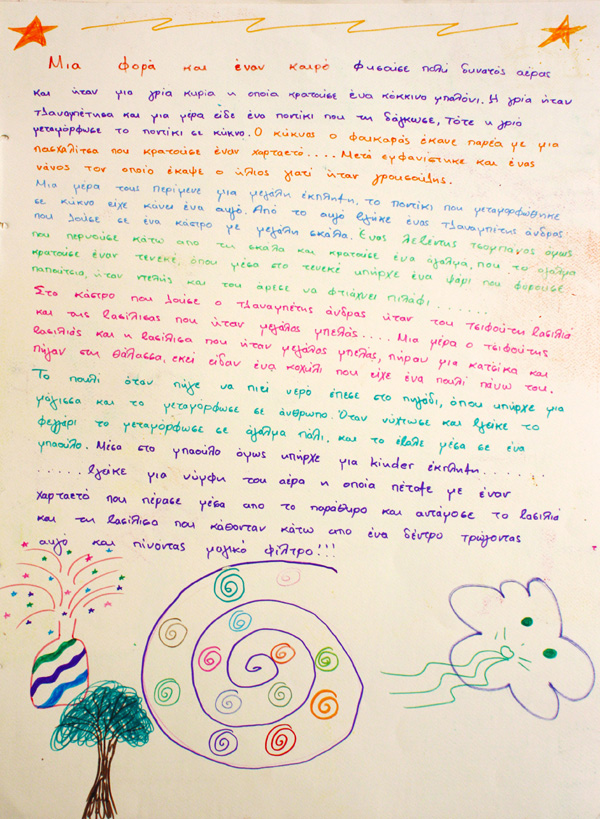 Μια φορά και έναν καιρό φυσούσε πολύ δυνατός αέρας
και ήταν μια γριά κυρία η οποία κρατούσε ένα κόκκινο μπαλόνι. Η γριά ήταν
τζαναμπέτισσα και μια μέρα είδε ένα ποντίκι που τη δάγκωσε, τότε η γριά
μεταμόρφωσε το ποντίκι σε κύκνο. Ο κύκνος ο φαλακρός έκανε παρέα με μια
πασχαλίτσα που κρατούσε έναν χαρταετό.... Μετά εμφανίστηκε και ένας
νάνος τον οποίο έκαψε ο ήλιος γιατί ήταν γρουσούζης.
Μια μέρα τους περίμενε μια μεγάλη έκπληξη, το ποντίκι που μεταμορφώθηκε
σε κύκνο είχε κάνει ένα αυγό. Από το αυγό βγήκε ένας τζαναμπέτης άνδρας
που ζούσε σε ένα κάστρο με μεγάλη σκάλα. Ένας λεβέντης τσομπάνος όμως
που περνούσε κάτω από τη σκάλα και κρατούσε ένα άγαλμα, που το άγαλμα
κρατούσε έναν τενεκέ, όπου μέσα στο τενεκέ υπήρχε ένα ψάρι που φορούσε
παπούτσια, ήταν ντελής και του άρεσε να φτιάχνει πιλάφι.......
Στο κάστρο που ζούσε ο τζαναμπέτης άνδρας ήταν του τσιφούτη βασιλιά
και της βασίλισσας που ήταν μεγάλος μπελάς..... Μια μέρα ο τσιφούτης
βασιλιάς και η βασίλισσα που ήταν μεγάλος μπελάς, πήραν μια κατσίκα και
πήγαν στη θάλασσα, εκεί είδαν ένα κοχύλι που είχε ένα πουλί πάνω του.
Το πουλί όταν πήγε να πιεί νερό έπεσε στο πηγάδι, όπου υπήρχε μια
μάγισσα και το μεταμόρφωσε σε άνθρωπο. Όταν νύχτωσε και βγήκε το
φεγγάρι το μεταμόρφωσε σε άγαλμα πάλι, και το έβαλε μέσα σε ένα
μπαούλο. Μέσα στο μπαούλο όμως υπήρχε μια kinder έκπληξη.......
...... βγήκε μια νύμφη του αέρα η οποία πέταξε με έναν
χαρταετό που πέρασε μέσα απο το παράθυρο και αντάμωσε το βασιλιά
και τη βασίλισσα που κάθονταν κάτω απο ένα δέντρο τρώγοντας
αυγό και πίνοντας μαγικό φίλτρο!!!